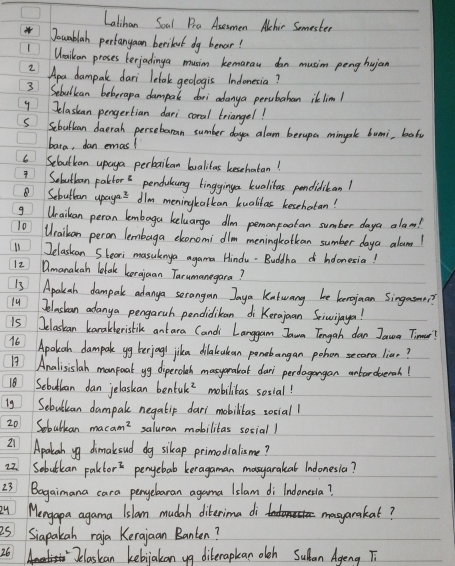 Latihan Soal Pra Asesmen Akhir Semester
* Jawablah pertanyaan berikut dg benar!
1 Uraikan proses terjadinya musim kemarau dan musim penghujan
2 Apa dampak dari letak geologis Indonesia?
3 Sebutkan beberapa dampak dari adanya perubahan iklim!
4 Jelaskan pengertian dari coral triangel!
5 Sebutkan daerah persebaran sumber daya alam berupa minyak bumi, batu
bara, dan emas!
6 Sebutkan upaya perbaikan kualitas kesehatan!
7 Sebutkan faktor² pendukung tingginya kualitas pendidikan!
8 Sebutkan upaya² dlm meningkatkan kualitas kesehatan!
9 Uraikan peran lembaga keluarga dlm pemanfaatan sumber daya alam!
10 Uraikan peran lembaga ekonomi dlm meningkatkan sumber daya alam!
11 Jelaskan 5 teori masuknya agama Hindu - Buddha di Indonesia!
12 Dimanakah letak kerajaan Tarumanegara?
13 Apakah dampak adanya serangan Jaya Katwang ke kerajaan Singasari?
14 Jelaskan adanya pengaruh pendidikan di Kerajaan Sriwijaya!
15 Jelaskan karakteristik antara Candi Langgam Jawa Tengah dan Jawa Timur!
16 Apakah dampak yg terjadi jika dilakukan penebangan pohon secara liar?
17 Analisislah manfaat yg diperoleh masyarakat dari perdagangan antardaerah!
18 Sebutkan dan jelaskan bentuk² mobilitas sosial!
19 Sebutkan dampak negatif dari mobilitas sosial!
20 Sebutkan macam² saluran mobilitas sosial!
21 Apakah yg dimaksud dg sikap primodialisme?
22 Sebutkan faktor² penyebab keragaman masyarakat Indonesia?
23 Bagaimana cara penyebaran agama Islam di Indonesia?
24 Mengapa agama Islam mudah diterima di masyarakat?
25 Siapakah raja Kerajaan Banten?
26 Jelaskan kebijakan yg diterapkan oleh Sultan Ageng Ti